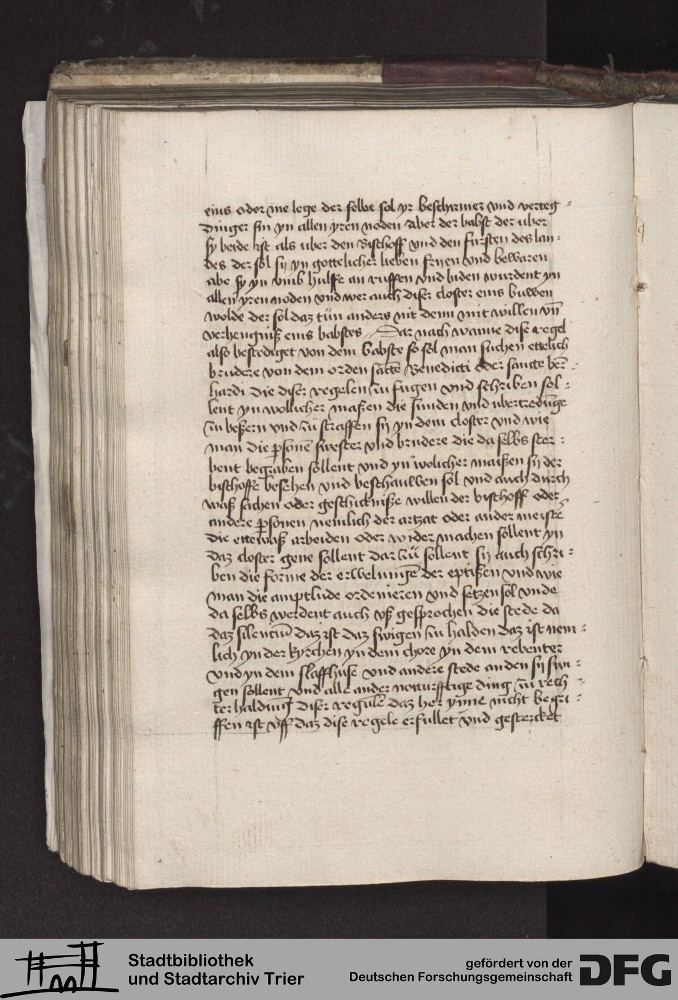 eins oder me lege der selbe sol yr beschirmer vnd verteg-
dinger sin yn allen yren noden Aber der babst der uber
sy beide ist als uber den Bischoff vnd den fursten des lan-
des der sol sij yn gottelicher lieben frijen vnd bewaren
abe sy yn vmb hulffe an ruffen vnd biden wurdent yn
allen yren noden vnd wer auch diser closter eins buwen
wolde der sol daz tün anders nit denn mit willen vn̄
verhengniß eins babstes Dar nach wanne dise regel
also bestediget von dem babste so sol man suchen ettelich
brudere von dem orden sātte Benedicti oder sancte ber-
hardi die diser regelen zu fugen vnd schriben sol-
lent yn wollicher maßen die sunden vnd ubertredūge
zu beßern vnd zü straffen sij yn dem closter vnd wie
man die ꝑsonē swester vnd brudere die da selbs ster-
bent begraben sollent vnd yn wolicher maißen sij der
bischoffe besehen vnd beschauwen sol vnd auch durch
waß sachen oder geschickniße willen der bischoff oder
andere ꝑsonen nemlich der artzat oder ander meistē
die ettewaß arbeiden oder wider machen sollent yn
daz closter gene sollent dar zü sollent sij auch schri-
ben die forme der erwelungē der eptißen vnd wie
man die amptlude ordenieren vnd setzen sol vnde
da selbs werdent auch vß gesprochen die stede da
daz silentiū daz ist daz swigen zu halden daz ist nem-
lich yn der kyrchen yn dem chore yn dem rebenter
vnd yn dem slaffhuse vnd andere stede an den sij swi-
gen sollent vnd alle ander noturfftige ding zu rech-
ter haldung diser regulē daz her ynne nicht begri-
ffen ist vff daz dise regele erfullet vnd gestercket
Stadtbibliothek
und Stadtarchiv Trier
gefördert von der
Deutschen Forschungsgemeinschaft
DFG